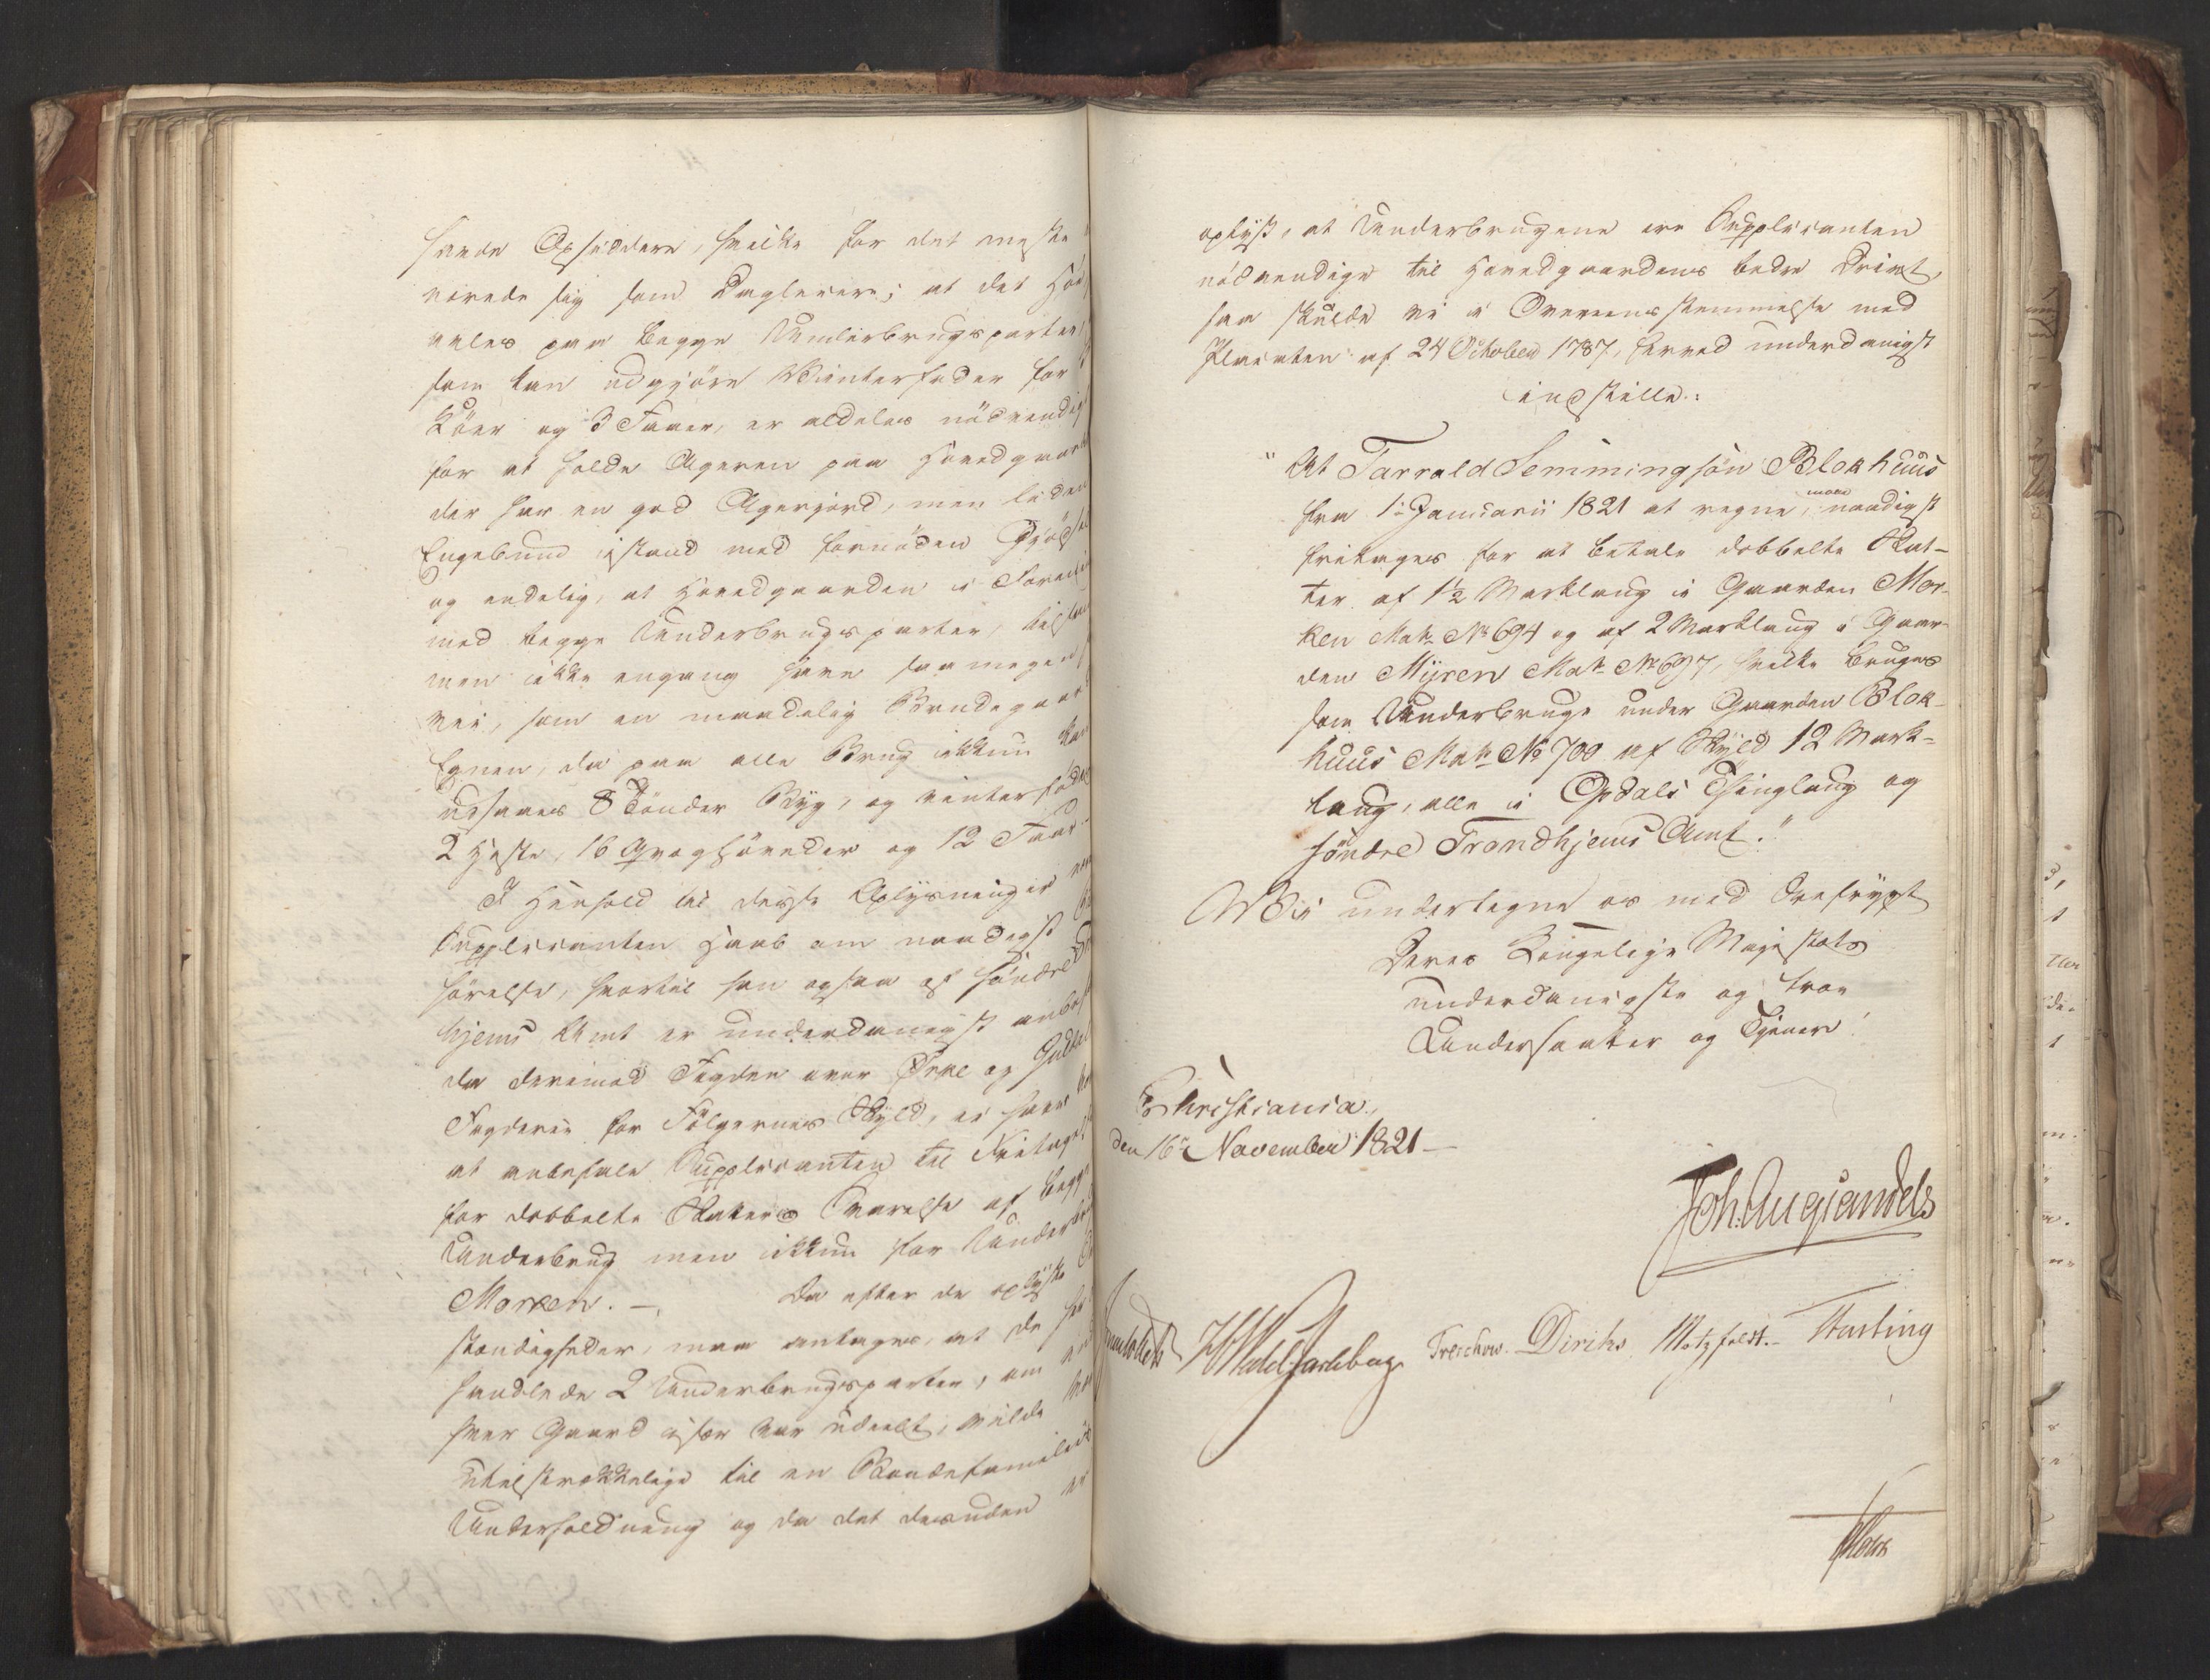 havde Opsiddere, hvilke for det meste
nærede sig som Daglejere; at det Höe,
aules paa begge Underbrugsparter,
som kan udgjöre Vinterfoder for
Köer og 3 Faaer, er aldeles nödvendigt
for at holde Ageren paa Hovedgaarden
der har en god Agerjord, men liden
Engebund istand med fornöden Gjödsel
og endelig, at Hovedgaarden i Forening
med begge Underbrugsparter,
men ikke engang have saa megen
som en maadelig Bondegaard
Egnen, da paa alle Brug ikkun kan
udsaaes 8 Tönder Byg, og vinterfödes
2 Heste, 16 Qvæghöveder og 12 Faar.
I Henhold til disse Oplysninger
Supplicanten Haab om naadigst
hörelse, hvortil han ogsaa af söndre
hjems Amt er underdanigst anbefalet
da derimod Fogden over Örke og Guldal
Fogderie for Fölgernes Skyld, ei har
at anbefale Supplicanten til Fritagelse
for dobbelte Skatters Svarelse af begge
Underbrug men ikkun for Underbruget
Morken. — Da efter de oplyste
stændigheder, maa antages, at de
handlede 2 Underbrugsparter, om
hver Gaard især var udeelt, vilde
utilstrækkelige til en Bondefamilies
Underholdning og da det desuden er
oplyst, at Underbrugene ere Supplicanten
nödvendige til Hovedgaardens bedre Drivt,
saa skulde vi i Overeensstemmelse med
Placaten af 24 October 1787, herved underdanigst
indstille:
"At Tarrald Semmingsön Blokhuus
fra 1ste Januarii 1821 at regne, maae naadigst
fritages for at betale dobbelte Skat-
ter af 1½ Marklaug i Gaarden Mor-
ken Matr No 694 og af 2 Marklaug i Gaar-
den Myren Matr No 697, hvilke bruges
som Underbruge under Gaarden Blok-
huus Matr No 700 af Skyld 12 Mark-
laug, alle i Opdals Thinglaug og
söndre Trondhjems Amt."
Vi undertegne os med Ærefrygt
Deres Kongelige Majestæts
underdanigste og troe
Undersaatter og Tjenere!
Christiania,
den 16de November 1821 —
Joh. Aug Sandels
Sommerhielm HWedel Jarlsberg Treschow. Diriks Motzfeldt. Fasting
Holst